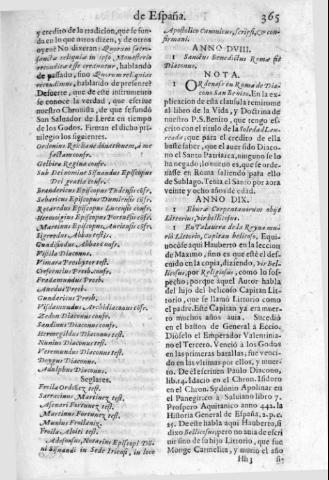 de España. 365
y credito de la tradicion, que se fun-
da en lo que otros dizen, y de otros
oyere No dixeran: Quorum sacro-
sanctæ reliquiæ in isto Monasterio
reconditæ esse creduntur, hablando
de passado, sino Quorum reliquiæ
recondimus, hablando de presente?
Desuerte, que de este instrumento
se conoce la verdad, que escriue
nuestro Chronista, de que se fundò
San Saluador de Lerez en tiempo
de los Godos. Firman el dicho pri-
uilegio los siguientes.
Ordonius Rex
factam confr.
Gelbira Regina confr.
Sub Dei nomine Sisnandus Episcopus
Dei gratia confr.
Branderiius Episcopus Tudensis cõfr.
Sabaricus Episcopus Dumiensis cõfr.
Recaredus Episcopus Lucensis cõfr.
Hermoigius Episcopus Portuensis cõfr.
Martinus Episcopus Auriensis cõfr.
Sigeredus Abbas
Gundisindus Abbas confr.
Vigila Diaconus.
Vimara Presbyter test.
Cresconius Presb. confr.
Fredamundus Presb.
Ansedus Presb.
Gundericus Presb.
Vistdamundus Archidiaconus cõfr.
Zedon Diaconus confr.
Sandinus Diaconus confr.
Hermegildus Diaconus test.
Nunius Diaconus test.
Veremundus Diaconus test.
Dongus Diaconus.
Adulphus Diaconus.
Seglares.
Froila Ordoñez test.
Sarracinus Martinez test.
Assenari Fortunez test.
Martinus Fortunez test.
Munius Fruilaniz.
Fruila, Aluiti test.
Adefonsus, Notarius Episcopi Dñi
Sisnandi in Sede Iriensi, in loco
Apostolico Canonicus, scripsi, & con-
firmani.
ANNO DVIII.
1 Sanctus Benedictus Romæ fit
Diaconus.
NOTA.
1 ORdenase en Roma de Dia-
cono San Benito. En la ex-
plicacion de esta clausula remitome
al libro de la Vida, y Dotrina de
nuestro P. S. Benito, que tengo es-
crito con el titulo de la Soledad Lau-
reada; que para el credito de ella
baste saber, que el auer sido Diaco-
no el Santo Patriarca, ninguno se lo
ha negado; lo nueuo es, que se orde-
nasse en Roma saliendo para ello
de Sublago. Tenia el Santo por aora
veinte y ocho años de edad.
ANNO DIX.
1 Eburæ Carpentanorum obijt
Littorius, vir bellicosus.
1 En Talauera de la Reyna mu-
riò Littorio, Capitan belicoso. Equi-
uocòse aqui Hauberto en la leccion
de Maximo, sino es que estè el des-
cuido en la copia, diziendo, vir bel-
licosus, por Religiosus, como lo sos-
pecho; porque aquel Autor habla
del hijo del belicoso Capitan Lit-
torio, que se llamò Littorio como
el padre. Este Capitan ya era muer-
to muchos años aula. Sucediò
en el baston de General a Eecio.
Dióselo el Emperador Valentinia-
no el Tercero. Venciò a los Godos
en las primeras batallas; fue venci-
do en las vltimas por ellos, y muer-
to. De el escriuen Paulo Diacono,
lib. 14. Idacio en el Chron. Isidoro
en el Chron. Sydonio Apolinar en
el Panegirico. Saluiano libro 7.
Prospero Aquitanico anno 442. la
Historia General de España, 2. p. c.
25. De este habla aqui Hauberto, si
dixo Bellicosus; pero no auia de escri-
uir sino de su hijo Littorio, que fue
Monge Carmelita, y murio el año
Hh 3 si-